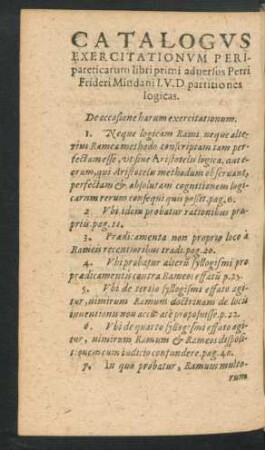 CATALOGVS
EXERCITATIONVM PERI-
pateticarum libri primi adversus Petri
Frideri Mindani I. V. D. partitiones
logicas.
De occasione harum exercitationum.
1. Neque logicam Rami, neque alte-
rius Ramea methodo conscriptam tam per-
fectam esse, ut sine Aristotelis logica, aut e-
orum, qui Aristotelis methodum observant,
perfectam & absolutam cognitionem logi-
carum rerum consequi quis possit. pag. 6.
2 Vbi idem probatur rationibus pro-
priis. pag. 12.
3. Prædicamenta non proprio loco à
Rameis recentioribus tradi. pag. 20.
4. Vbi probatur alteri⁹ syllogismi pro
prædicamentis contra Rameos effatū p. 25.
5. Vbi de tertio syllogismi effato agi-
tur, nimirum Ramum doctrinam de locis
inventionis non accuratè proposuisse. p. 32.
6. Vbi de quarto syllogismi effato agi-
tur, nimirum Ramum & Rameos disposi-
tionem cum iudicio confundere. pag. 40.
7. In quo probatur, Ramum multo-
rum